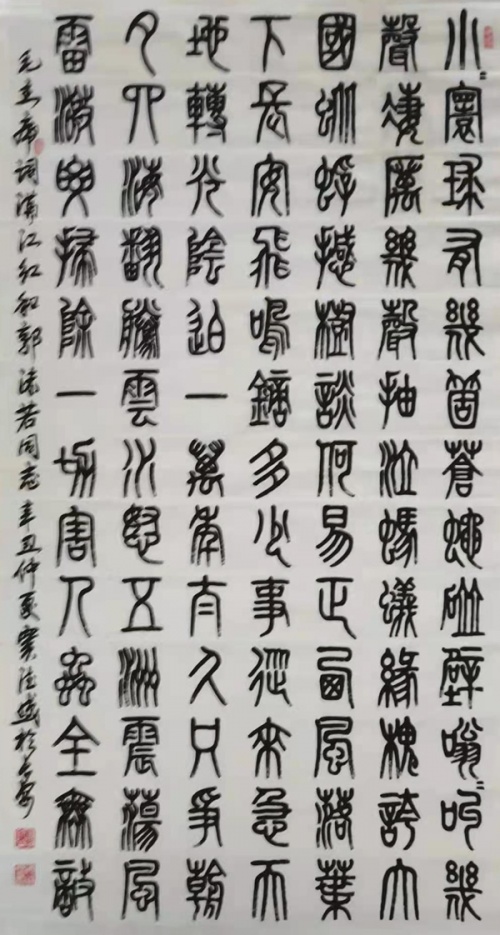 小〻寰球有幾箇蒼蠅碰壁嗡〻叫幾
聲凄厲幾聲抽泣螞蟻緣槐誇大
國蚍蜉撼樹談何易正西風落葉
下長安飛鳴鏑多少事從來急天
地轉光陰迫一萬年太久只爭朝
夕四海翻騰雲水怒五洲震蕩風
雷激要掃除一切害人蟲全無敵
毛主席詞滿江紅和郭沫若同志辛丑仲夏於長安